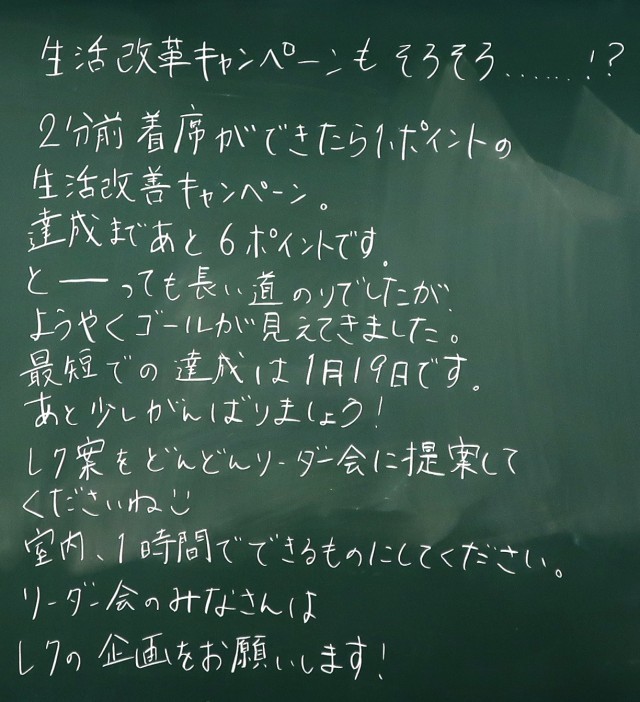 生活改革キャンペーンもそろそろ......!?
2分前着席ができたら1ポイントの
生活改善キャンペーン。
達成まであと6ポイントです。
とーーっても長い道のりでしたが、
ようやくゴールが見えてきました。
最短での達成は1月19日です。
あと少しがんばりましょう!
レク案をどんどんリーダー会に提案して
くださいね
室内、1時間でできるものにしてください。
リーダー会のみなさんは
レクの企画をお願いします!